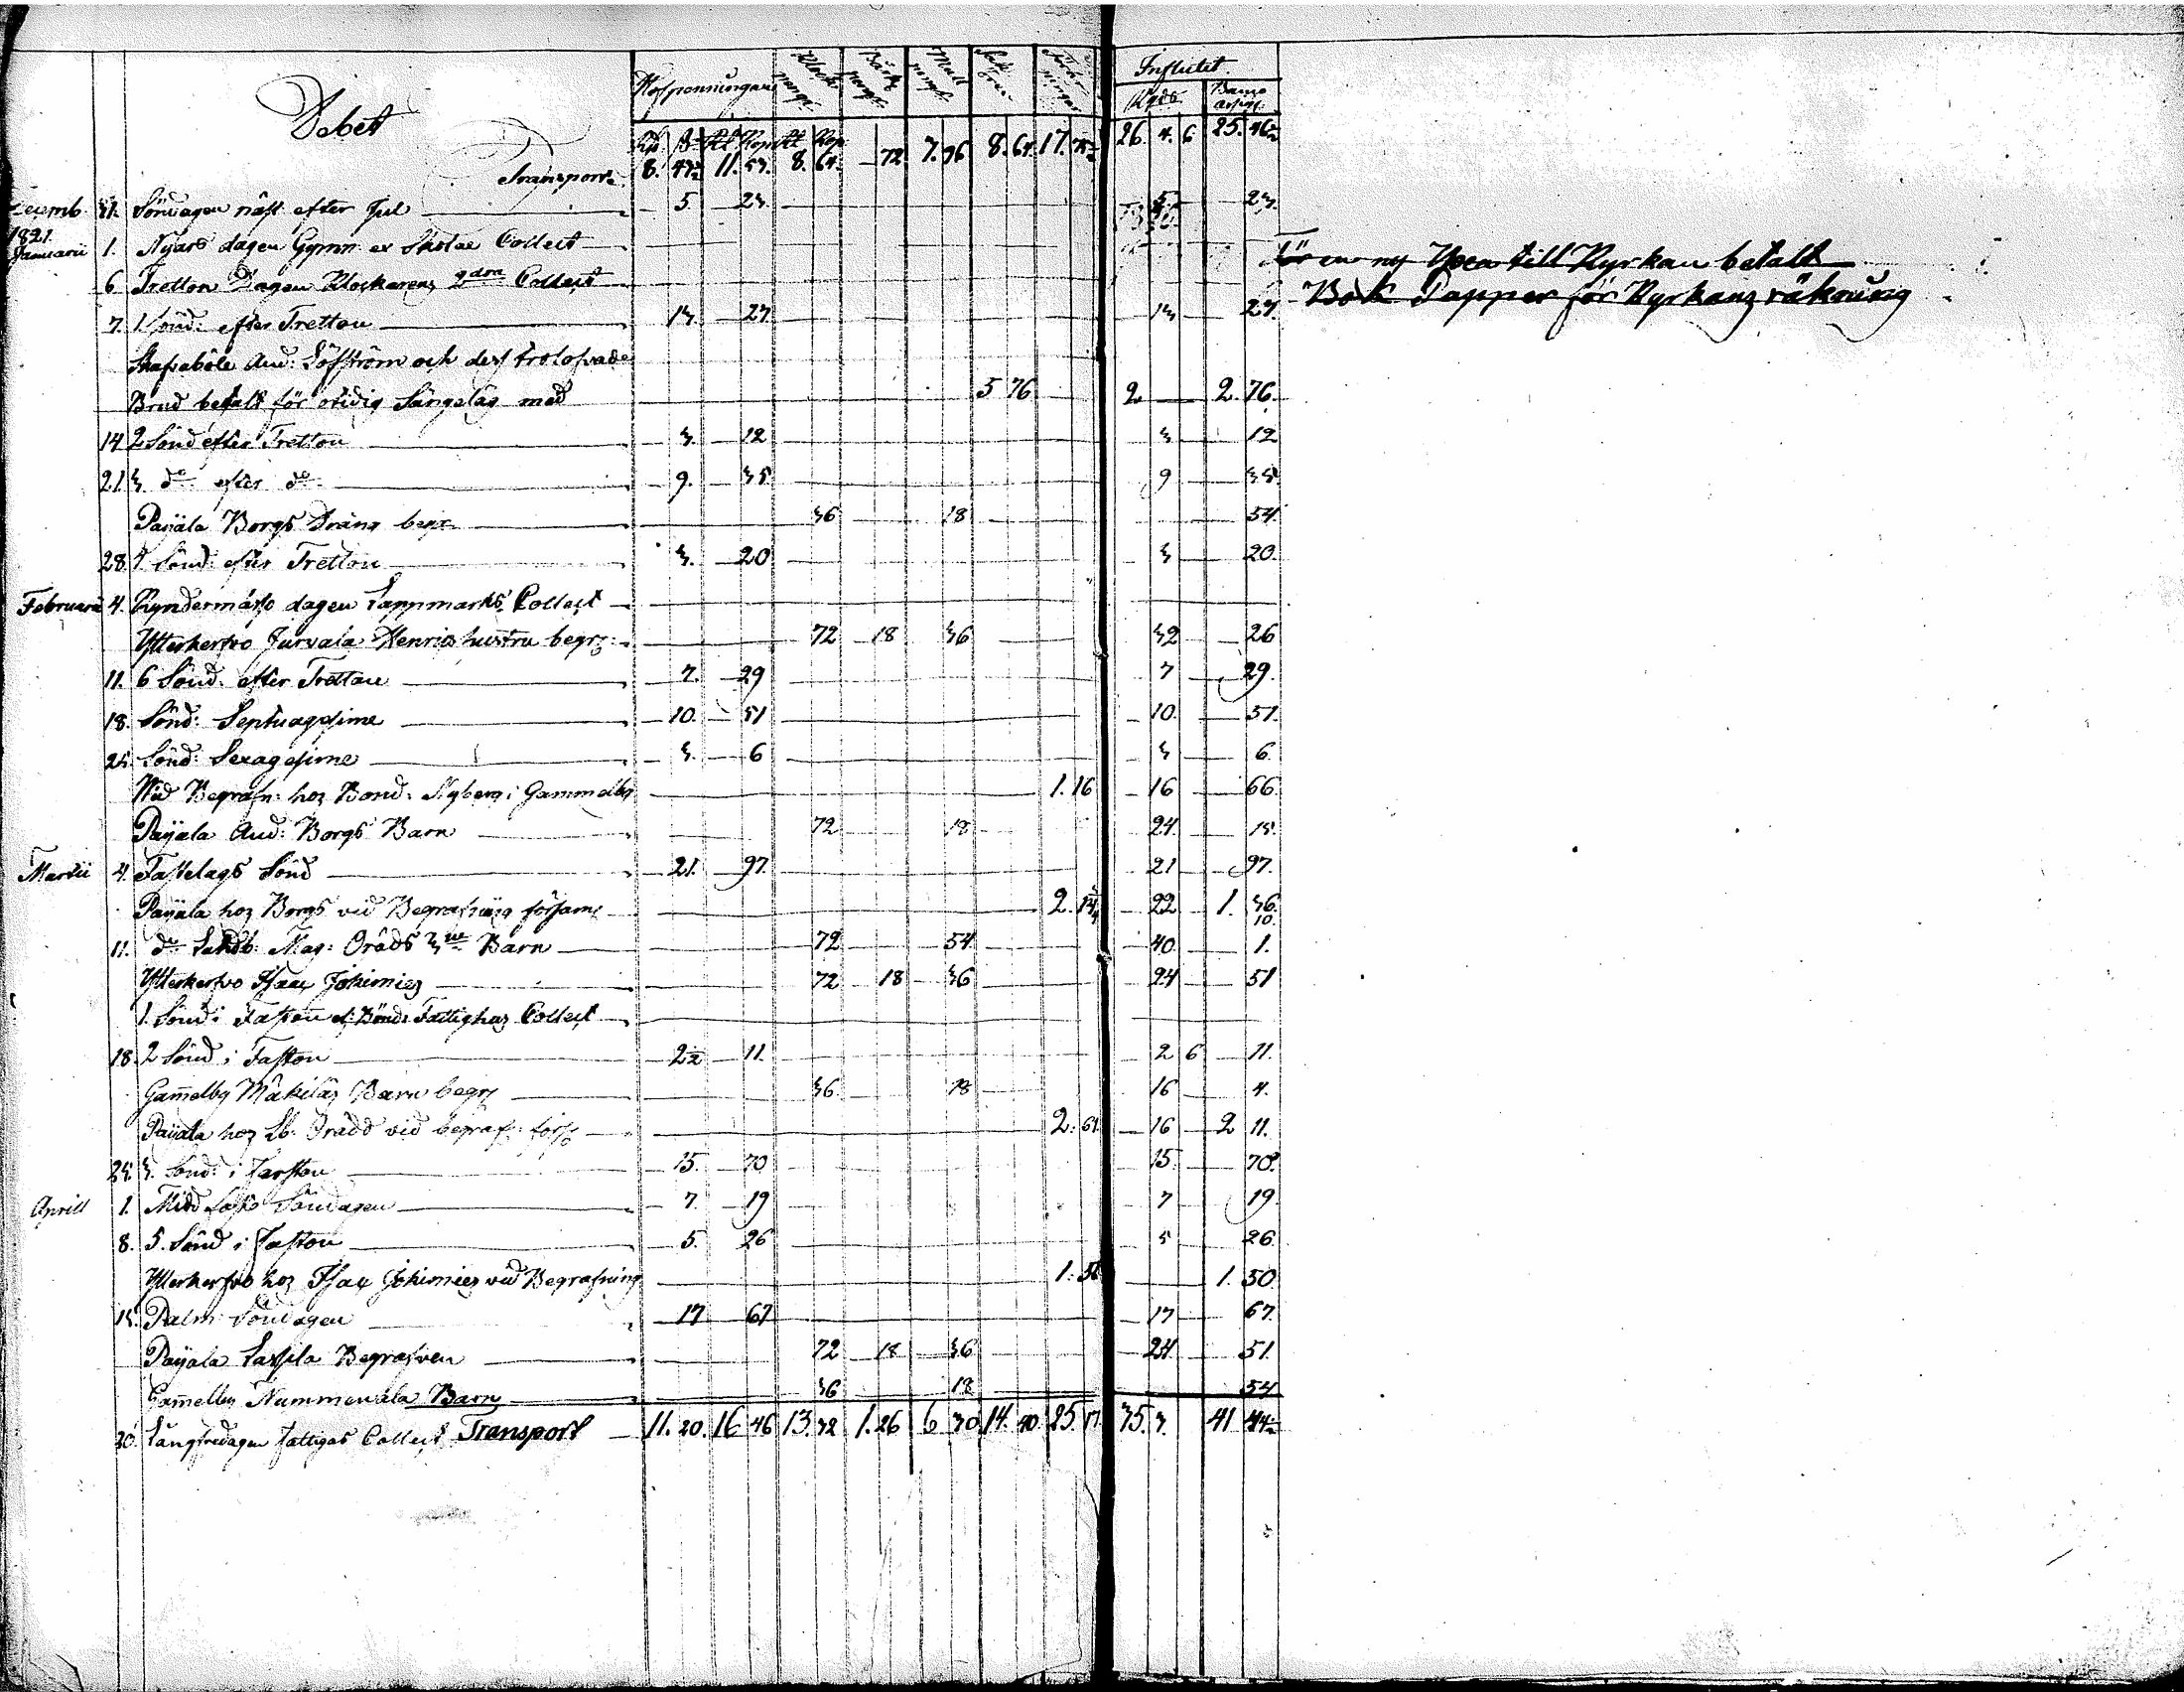 Debet
Håfpenningar Klock penngr Bårk pengr Mull pengr
Influtit
Rgds Banco assign:
Rd. Rl Kop Rl Kop
Transport 8. 11. 8. 64. 72 7. 8. 64. 17. 26. 4. 6 25. 46
Decemb. 31. Söndagen näst efter Jul 5. 23. 5 23.
1821.
Januarii 1. Nyårs dagen Gymn: ex Skolae Collect
För en ny till Kyrkan betalt
6 Tretton Dagen Klockarens Collect
Bok Papper för Kyrkans räkning
7. 1 Sönd: efter Tretton 13. 27. 13 27.
And: Löfström och dess trolofvade
Brud betalt för otidig Sängelag med 5 76 2 2. 76.
14. 2 Sönd efter Tretton 3. 12 3 12
21. 3 do efter do 9. 35 9 35
Payala Borgs Dräng begr. 36 18 54.
28. 4 Sönd: efter Tretton 3. 20 3 20.
Februarii 4. Kyndermässo dagen Lappmarks Collect
Ytterkertvo Jurvala Henrics hustru begr: 72 18 36 32 26
11. 6 Sönd. efter Tretton 7. 29 7 29.
18. Sönd: Septuagesime 10. 51 10. 51.
25. Sönd: Sexagesime 3. 6 3 6
Vid Begrafn: hos Bond: Nyberg i Gammelby 1. 16 16 66.
Payala And: Borgs Barn 72 18 24. 15.
Martii 4. Fastelags Sönd 21. 97. 21 97.
Payala hos Borgs vid Begrafning församl 2. 22 1. 36.
11. do Landb: Mag: Orådds Barn 72 54 40 1. 10.
Ytterkertvo Isaac Johimies 72 18 36 24 51
1. Sönd i Faston Fattighus Collect
18. 2 Sönd i Faston 2½ 11. 2 6 11.
Gam̄elby Mäkiläs Barn begr 36. 18 16 4.
Payala hos Lb: Orådd vid begraf: förs 2. 61. 16 2 11.
25. 3. Sönd: i Faston 15. 70 15. 70.
Aprill 1. Midfasto Söndagen 7. 19 7 19.
8. 5. Sönd i Faston 5. 26 5 26.
Ytterkertvo hos Isac Johimies vid Begrafning 1. 50 1. 50
15. Palm Söndagen 17 67 17 67.
Payala Begrafven 72 18 36 24 51
Gam̄elby Nummenala Barn 36 18 54
20. Långfredagen Fattigas Collect Transport 11. 20. 16 46 13. 32 1. 26 6 30 14. 40. 25. 17 35. 3. 41 44½